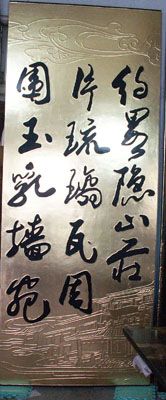 约畧隐山庄
片琉璃瓦周
围玉乳墙